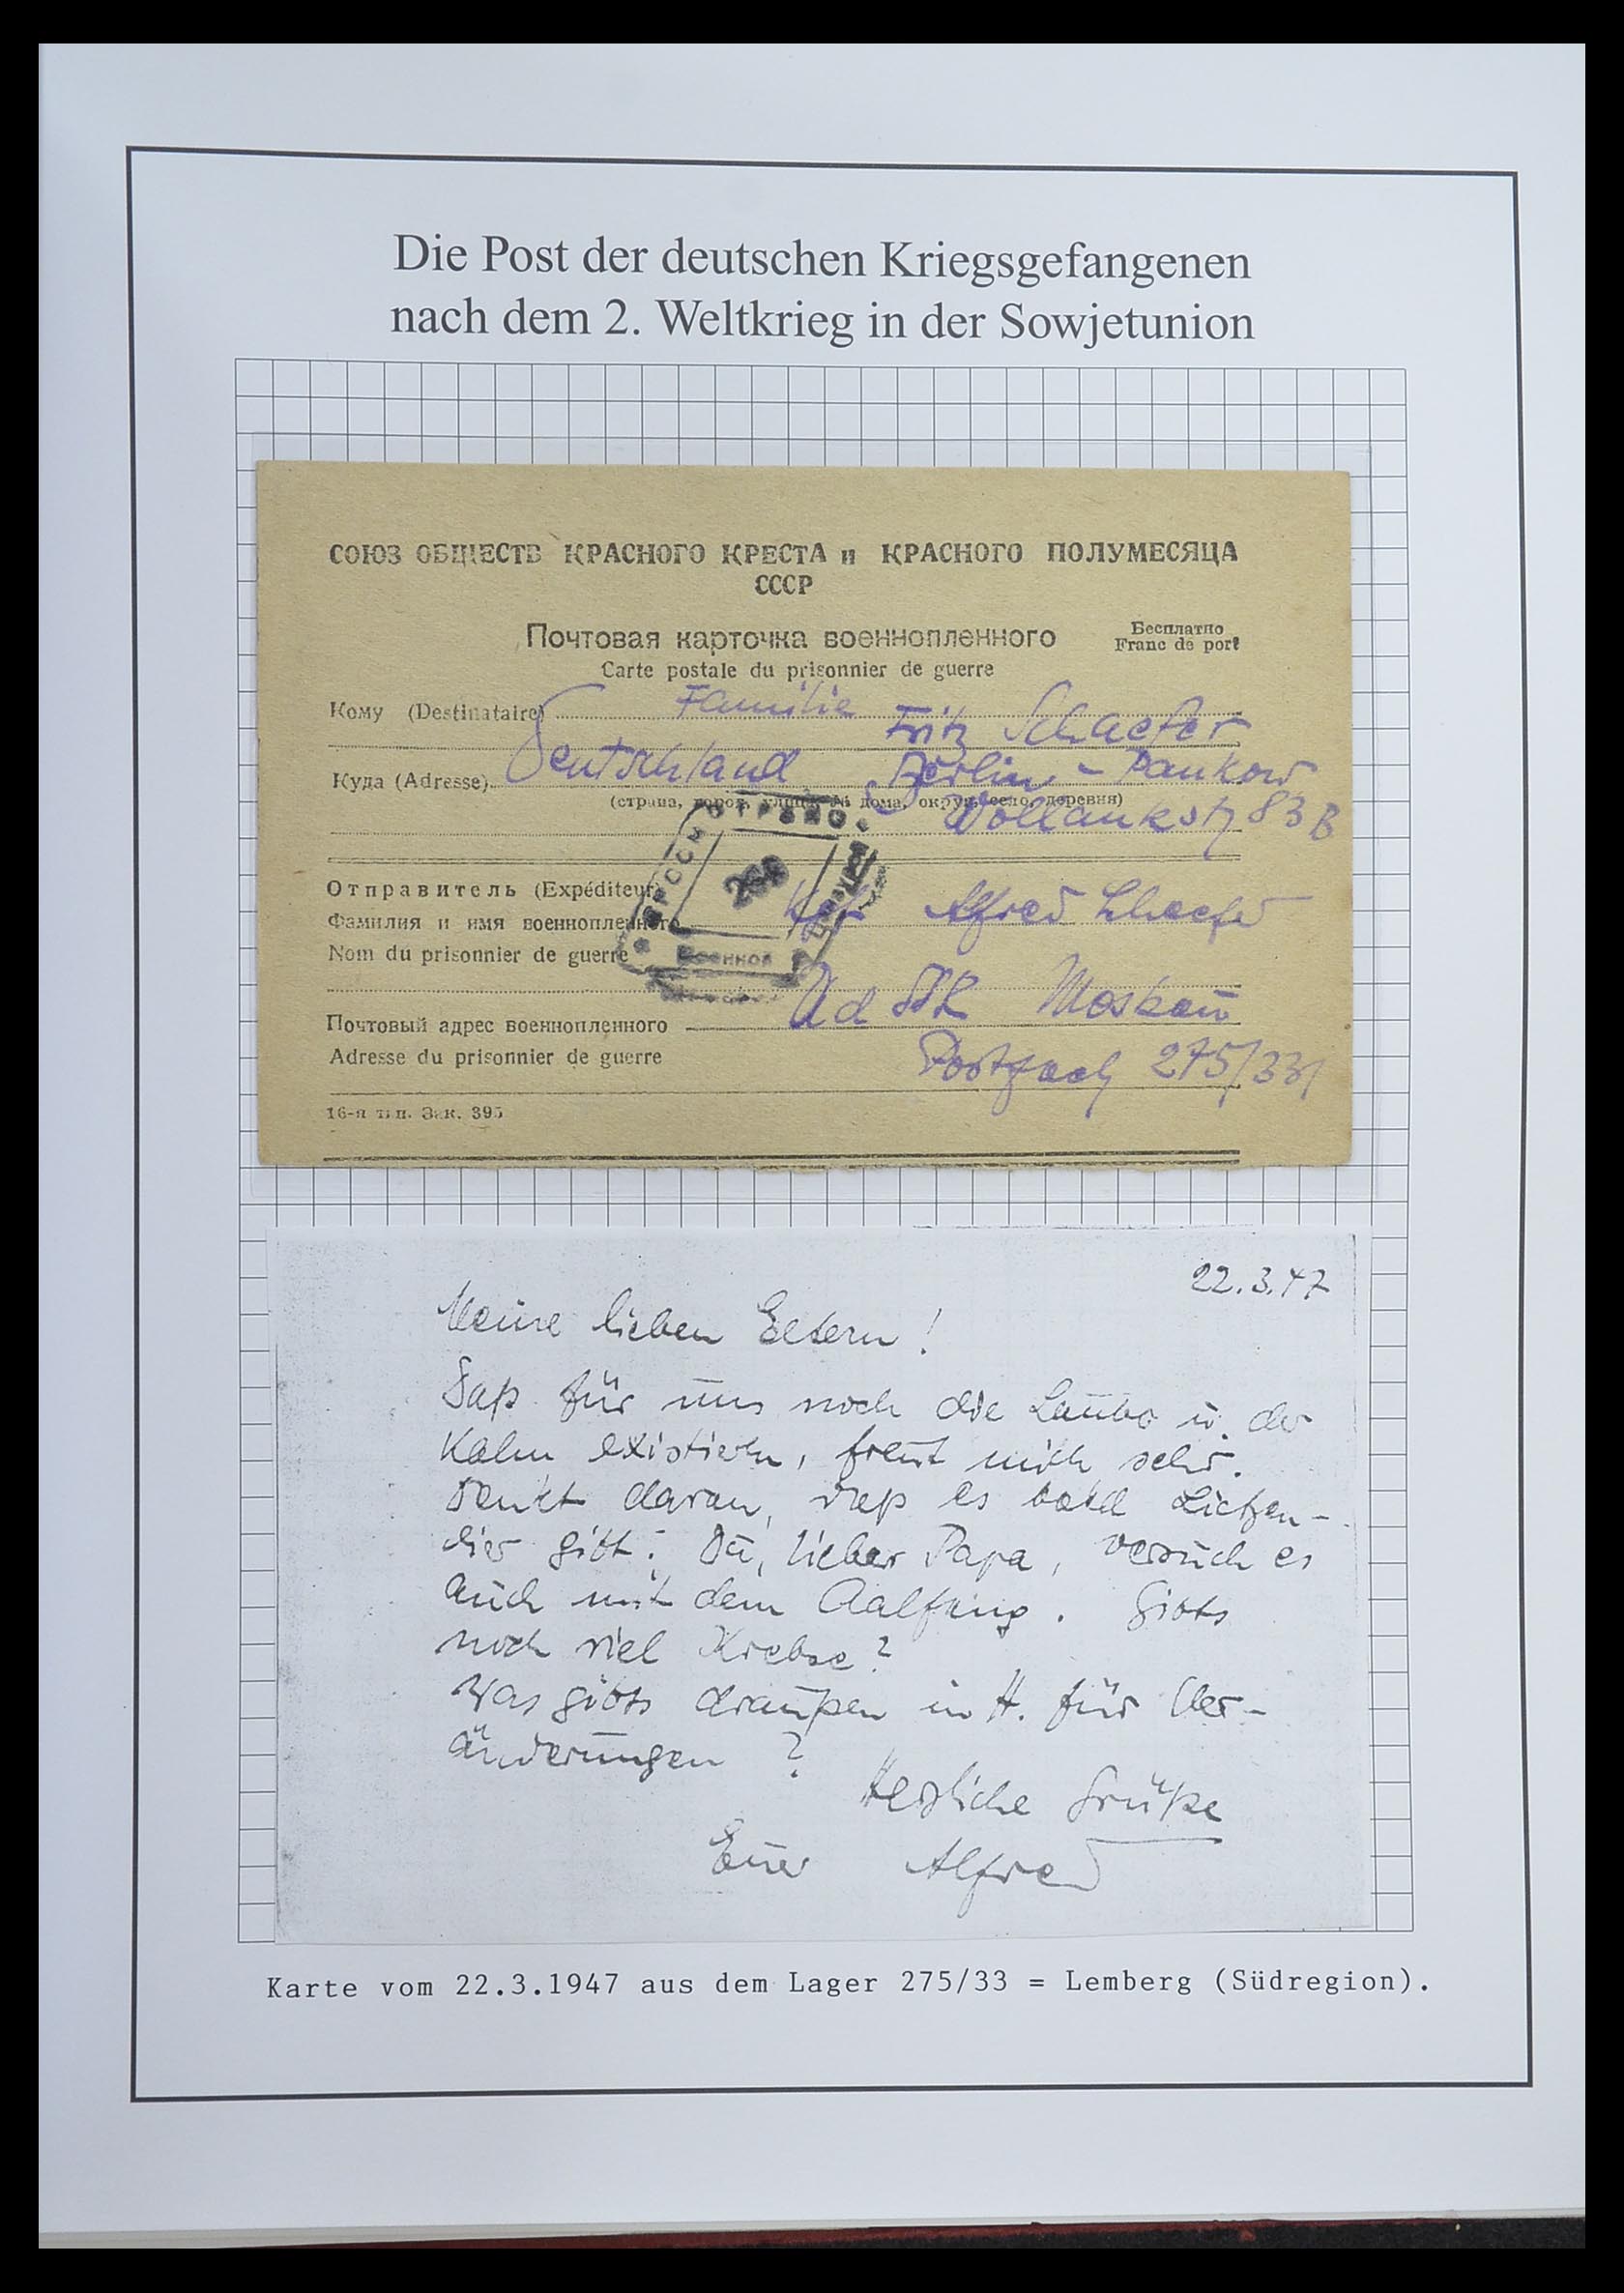 Die Post der deutschen Kriegsgefangenen
nach dem 2. Weltkrieg in der Sowjetunion
СОЮЗ ОБЩЕСТВ КРАСНОГО КРЕСТА и КРАСНОГО ПОЛУМЕСЯЦА
СССР
Почтовая карточка военнопленного
Бесплатно
Franc de port
Carte postale du prisonnier de guerre
Кому (Destinataire) Familie
Fritz Schaefer
Куда (Adresse) Deutschland Berlin - Pankow
(страна, город, улица, № дома, округ, село, деревня)
Wollankstr 83 B
Отправитель (Expéditeur)
Фамилия и имя военнопленного Kgf. Alfred Schaefer
Nom du prisonnier de guerre
UdSSR Moskau
Почтовый адрес военнопленного
Adresse du prisonnier de guerre
Postfach 275/331
16-я тип. Зак. 395
22.3.47
Meine lieben Eltern!
Daß für uns noch die Laube u. der
Kahn existieren, freut mich sehr.
Denkt daran, daß es bald
gibt. Du, lieber Papa, versuch es
auch mit dem Aalfang. Gibts
noch viel Krebse?
Was gibts draußen in H. für Ver-
änderungen?
Herzliche Grüße
Euer Alfred
Karte vom 22.3.1947 aus dem Lager 275/33 = Lemberg (Südregion).